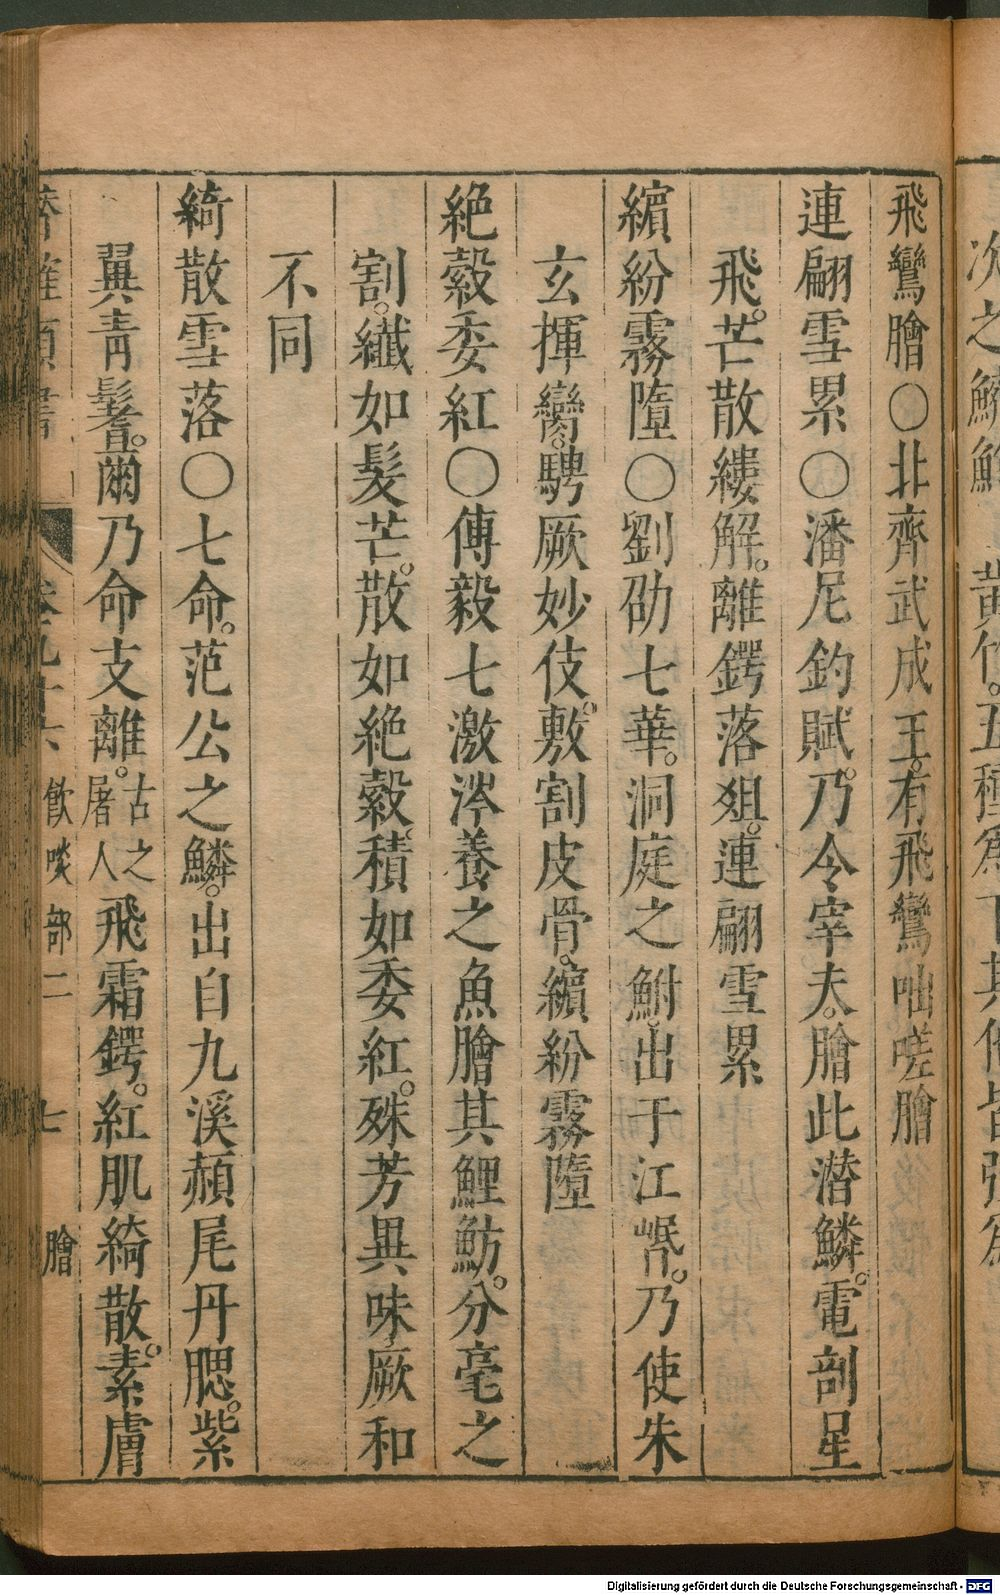 次之鱗鮒 黃竹。五種爲下其他皆強爲
飛鸞膾○北齊武成王。有飛鸞咄嗟膾
連翩雪累○潘尼釣賦。乃令宰夫。膾此潛鱗。電剖星
飛。芒散縷解。離鍔落俎。連翩雪累
繽紛霧墮○劉劭七華。洞庭之鮒。出于江岷。乃使朱
玄揮鸞。騁厥妙伎。敷割皮骨。繽紛霧墮
絶縠委紅○傅毅七激涔養之魚膾其鯉魴。分毫之
割。纖如髮芒。散如絶縠。積如委紅。殊芳異味。厥和
不同
綺散雪落○七命。范公之鱗。出自九溪頳尾丹腮。紫
翼青鬐。爾乃命支離。古之屠人飛霜鍔。紅肌綺散。素膚
卷九十六 飮啖部二 七 膾
Digitalisierung gefördert durch die Deutsche Forschungsgemeinschaft - DFG